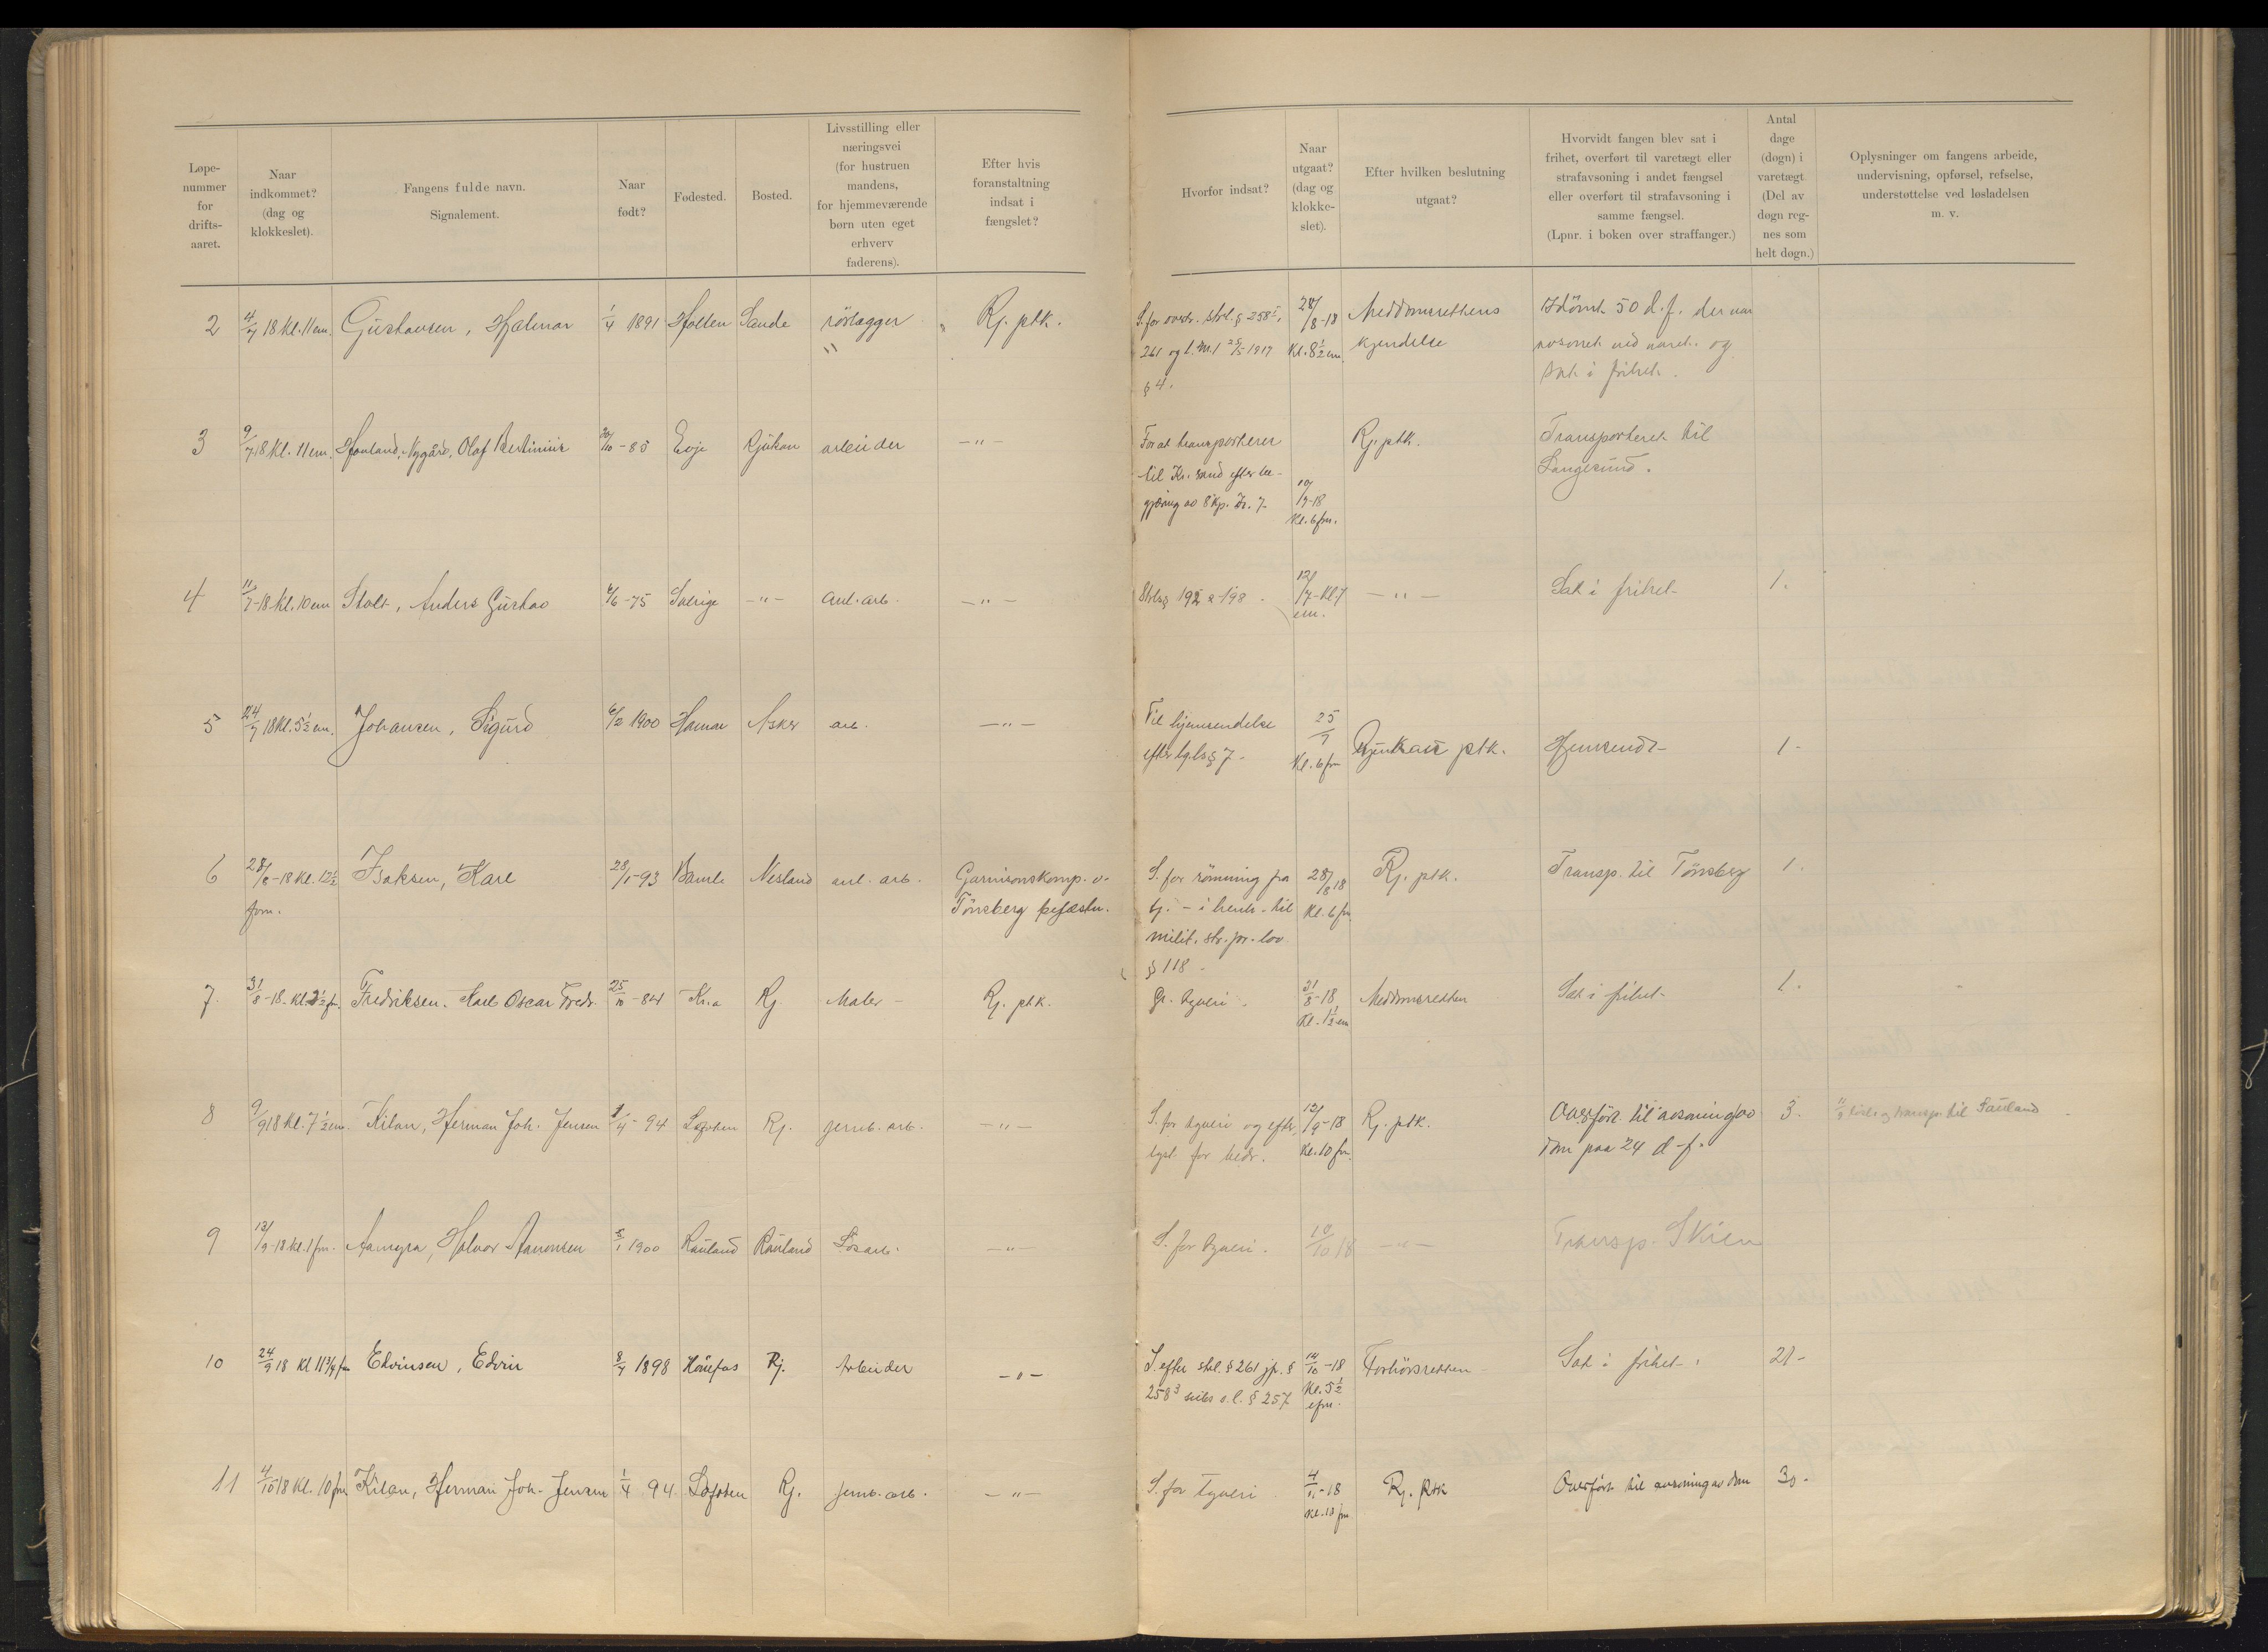 Løpe-
nummer
for
drifts-
aaret.
Naar
indkommet?
(dag og
klokkeslet).
Fangens fulde navn.
Signalement.
Naar
født?
Fødested.
Bosted.
Livsstilling eller
næringsvei
(for hustruen
mandens,
for hjemmeværende
børn uten eget
erhverv
faderens).
Efter hvis
foranstaltning
indsat i
fængslet?
Hvorfor indsat?
Naar
utgaat?
(dag og
klokke-
slet).
Efter hvilken beslutning
utgaat?
Hvorvidt fangen blev sat i
frihet, overført til varetægt eller
strafavsoning i andet fængsel
eller overført til strafavsoning i
samme fængsel.
(Lpnr. i boken over straffanger.)
Antal
dage
(døgn) i
varetægt
(Del av
døgn reg-
nes som
helt døgn.)
Oplysninger om fangens arbeide,
undervisning, opførsel, refselse,
understøttelse ved løsladelsen
m. v.
2
4/7 18 Kl. 11 em.
Gustavsen, Hjalmar
1/4 1891
Holten
Sande
rörlægger
"
Rj. ptk.
S. for overtr. strl. § 258
261 og l. 25/5 1917
§ 4.
28/8-18
Kl. 8½ em.
Meddomsrettens
kjendelse
Idömt 50 d. f. der var
avsonet ved varet. og
Sat i frihet.
3
9/7 18 Kl. 11 em.
Nygård, Olaf
30/10-85
Evje
Rjukan
arbeider
-"-
For at transporteres
til Kr. sand efter be-
gjæring av 8 Kp. 7-
10/7-18
Kl. 6 fm.
Rj. ptk.
Transporteret til
Langesund.
4
11/7-18 Kl. 10 em
Stolt, Anders Gustav
6/6-75
Sverige
-"-
anl. arb.
-"-
Strl. § 192 198.
12/7-Kl 7
em.
-"-
Sat i frihet-
1.
5
24/7 18 Kl. 5½ em.
Johansen, Sigurd
6/2 1900
Hamar
Asker
arb.
-"-
Til hjemsendelse
efter § 7-
25/7
Kl. 6 fm
Rjukan ptk.
Hjemsendt-
1-
6
28/8-18 Kl. 12½
fm.
Isaksen, Karl
28/1-93
Bamle
Nesland
anl. arb.
Garnisonskomp. v.
Tönsberg befæstn.
S. for römning fra
tj. - i henh. til
milit. str. pr. lov
§ 118-
28/8 18
Kl. 6 fm.
Rj. ptk.
Transp. til Tönsberg
1.
7.
31/8-18. Kl. 2½ fm.
Fredriksen, Karl Oscar Fredr.
25/10-84
Kr.a
Rj.
Maler-
Rj. ptk.
Gr. tyveri.
31/8-18
Kl. 1½ em
Meddomsretten
Sat i frihet-
1.
8
9/9 18 Kl. 7½ em.
Kilan, Herman Joh. Jensen
1/4-94
Lofoten
Rj.
jernb. arb.
-"-
S. for tyveri og efter-
lyst for bedr.
12/9-18
Kl. 10 fm.
Rj. ptk.
Overfört til avsoning av
dom paa 24 d-f.
3.
transp. til Sauland
9
13/9-18. Kl. 1 fm.
Aamyra, Halvor Aanonsen
5/1 1900
Rauland
Rauland
Lösarb.
-"-
S. for tyveri.
10/10 18
-"-
Transp. Skien
10
24/9 18 Kl 11¾ fm
Edvinsen, Edvin
8/7 1898
Hönefos
Rj.
Arbeider
-"-
S. efter strl. § 261 jfr. §
258³ subs s. l. § 257
14/10-18
Kl. 5½
efm.
Forhörsretten-
Sat i frihet.
21-
11
4/10 18 Kl. 10 fm
Kilan, Herman Joh. Jensen
1/4 94.
Lofoten
Rj.
jernb. arb.
-"-
S. for tyveri
4/11-18
Kl. 10 fm
Rj. Ptk
Overfört til avsoning av dom
30.